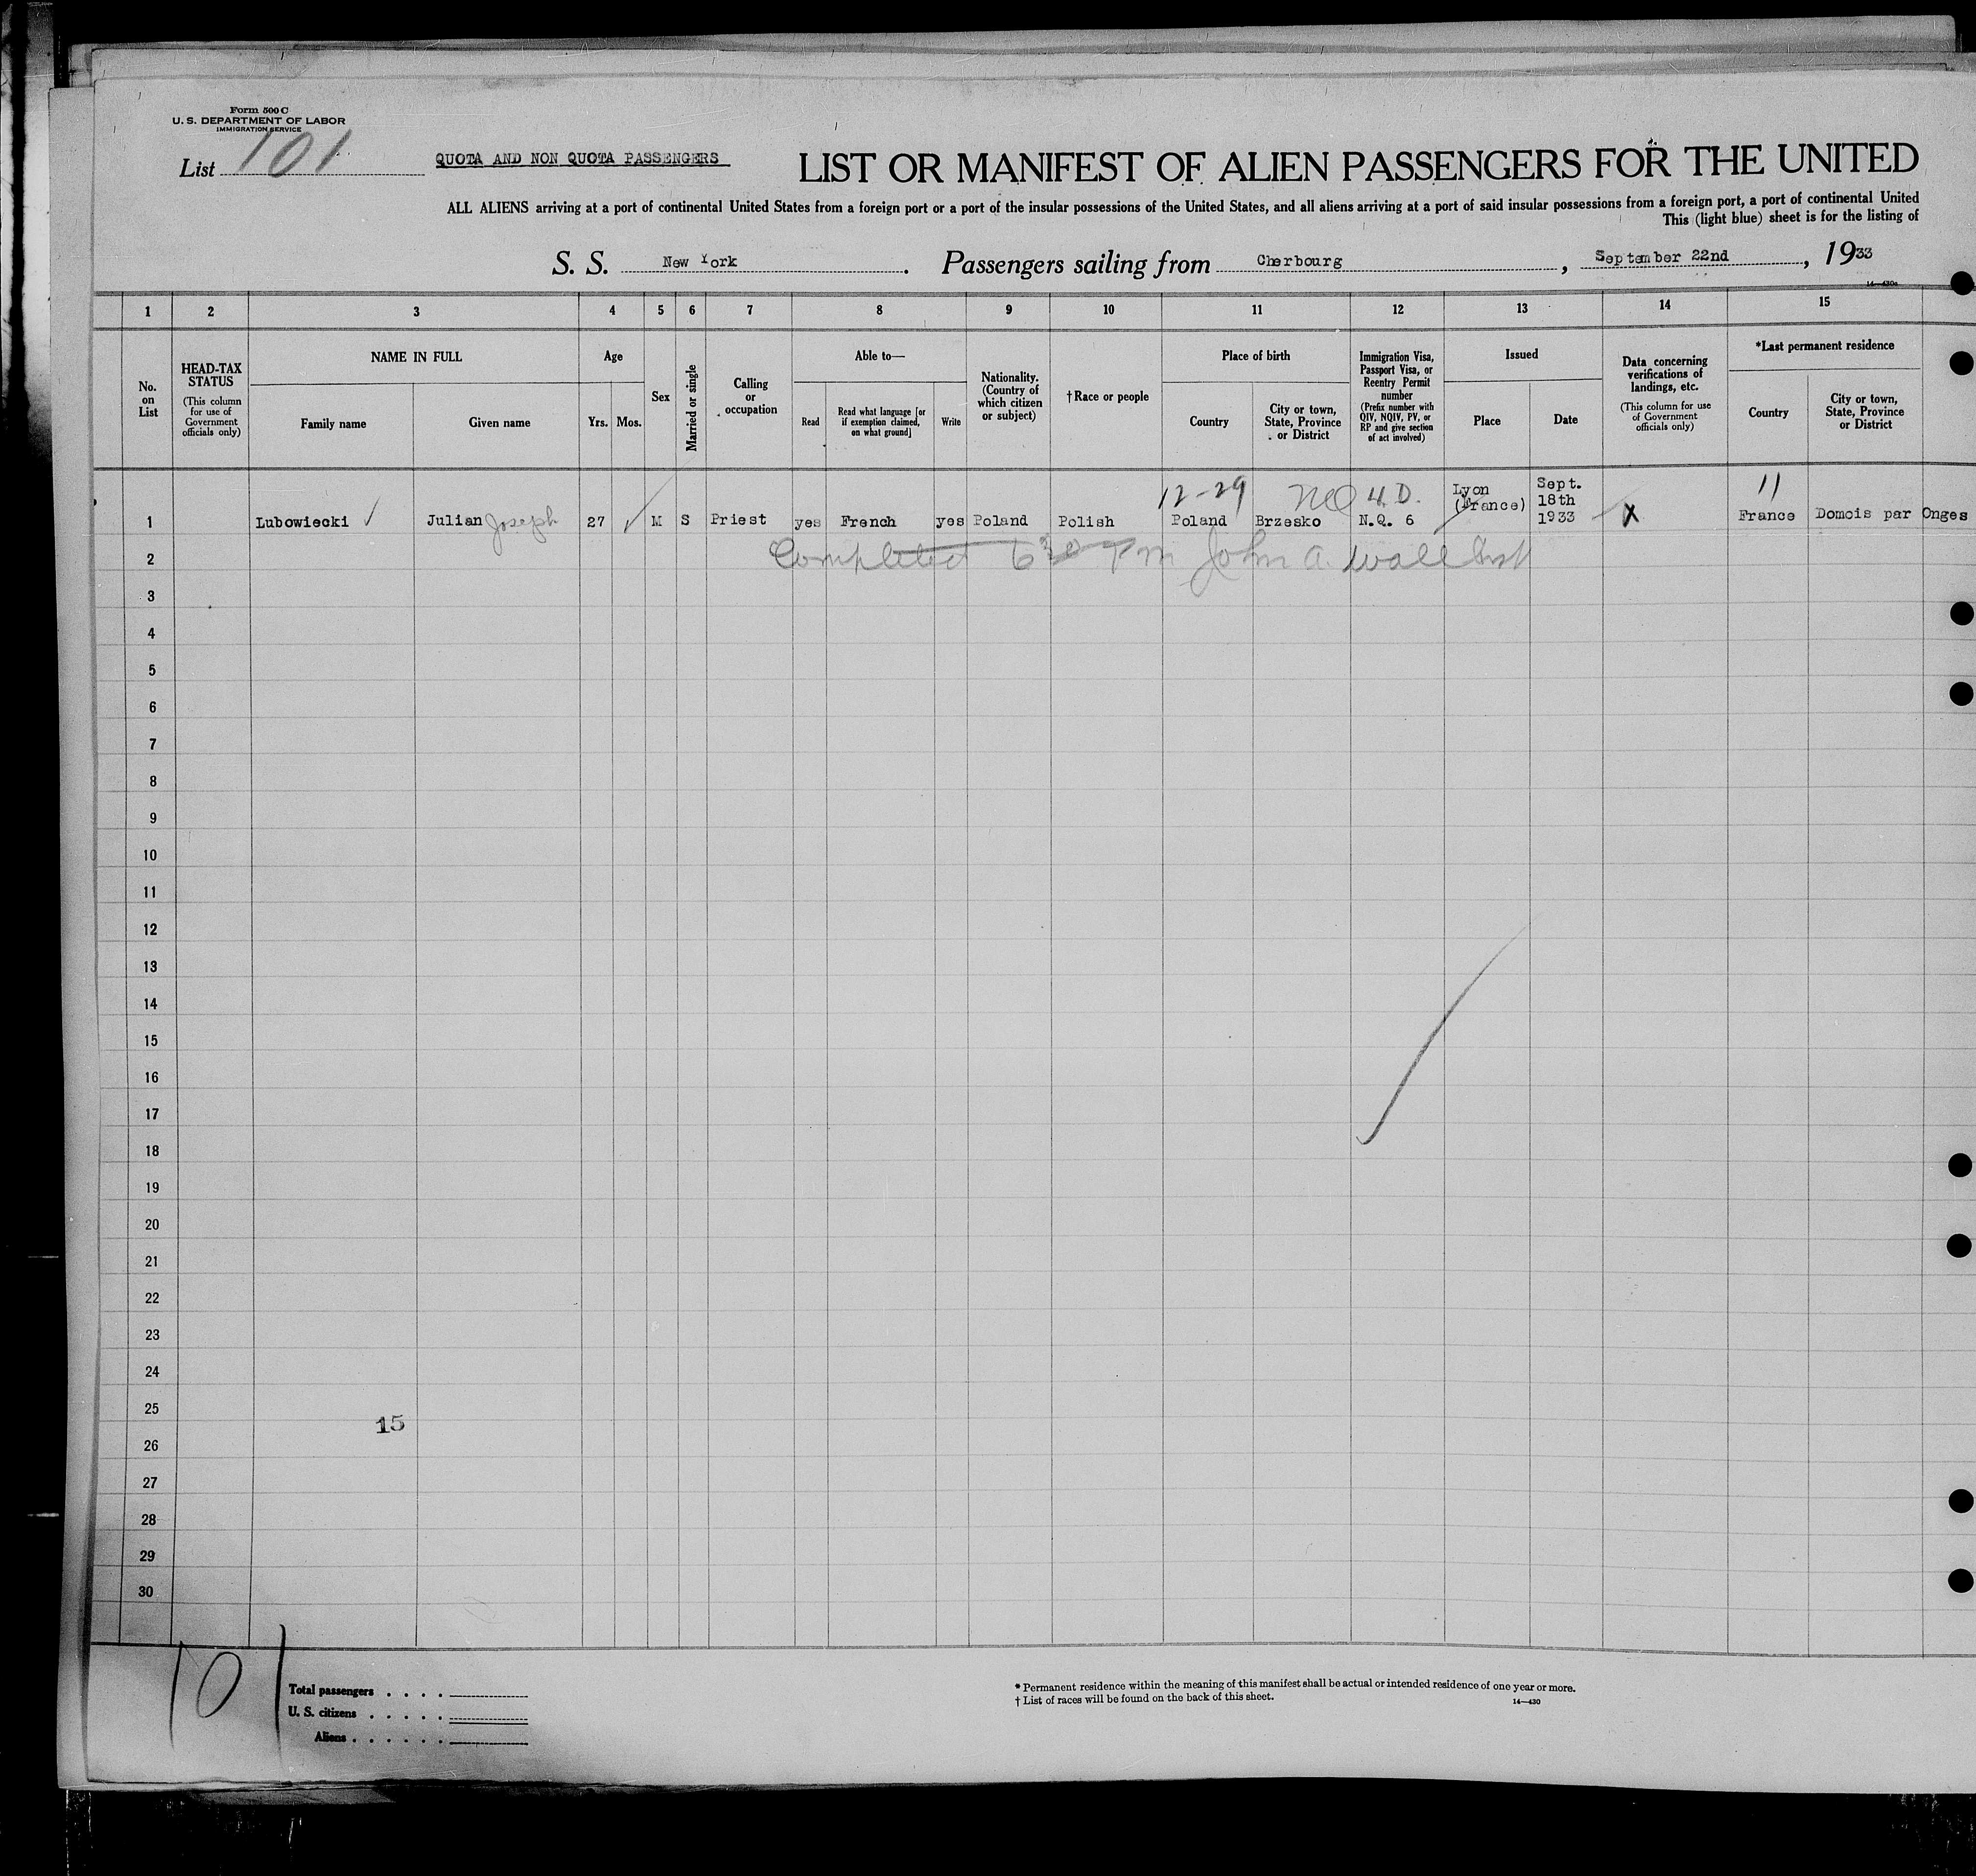 Form 500 C
U. S. DEPARTMENT OF LABOR
IMMIGRATION SERVICE
List 101
QUOTA AND NON QUOTA PASSENGERS
LIST OR MANIFEST OF ALIEN PASSENGERS FOR THE UNITED
ALL ALIENS arriving at a port of continental United States from a foreign port or a port of the insular possessions of the United States, and all aliens arriving at a port of said insular possessions from a foreign port, a port of continental United
This (light blue) sheet is for the listing of
S. S. New York. Passengers sailing from Cherbourg, September 22nd, 1933
14—430a
1 2 3 4 5 6 7 8 9 10 11 12 13 14 15
No. on List
HEAD-TAX STATUS
(This column for use of Government officials only)
NAME IN FULL
Family name
Given name
Age
Yrs. Mos.
Sex
Married or single
Calling or occupation
Able to—
Read
Read what language [or if exemption claimed, on what ground]
Write
Nationality. (Country of which citizen or subject)
†Race or people
Place of birth
Country
City or town, State, Province or District
Immigration Visa, Passport Visa, or Reentry Permit number
(Prefix number with QIV, NQIV, PV, or RP and give section of act involved)
Issued
Place
Date
Data concerning verifications of landings, etc.
(This column for use of Government officials only)
*Last permanent residence
Country
City or town, State, Province or District
12-29 NQ 4 D. 11
1 Lubowiecki Julian Joseph 27 M S Priest yes French yes Poland Polish Poland Brzesko N.Q. 6 Lyon (France) Sept. 18th 1933 X France Domois par Onges
Completed 6 30 PM John A. Wall Insp
2
3
4
5
6
7
8
9
10
11
12
13
14
15
16
17
18
19
20
21
22
23
24
25
15
26
27
28
29
30
101
Total passengers . . . .
U. S. citizens . . . . .
Aliens . . . . . .
* Permanent residence within the meaning of this manifest shall be actual or intended residence of one year or more.
† List of races will be found on the back of this sheet.
14—430